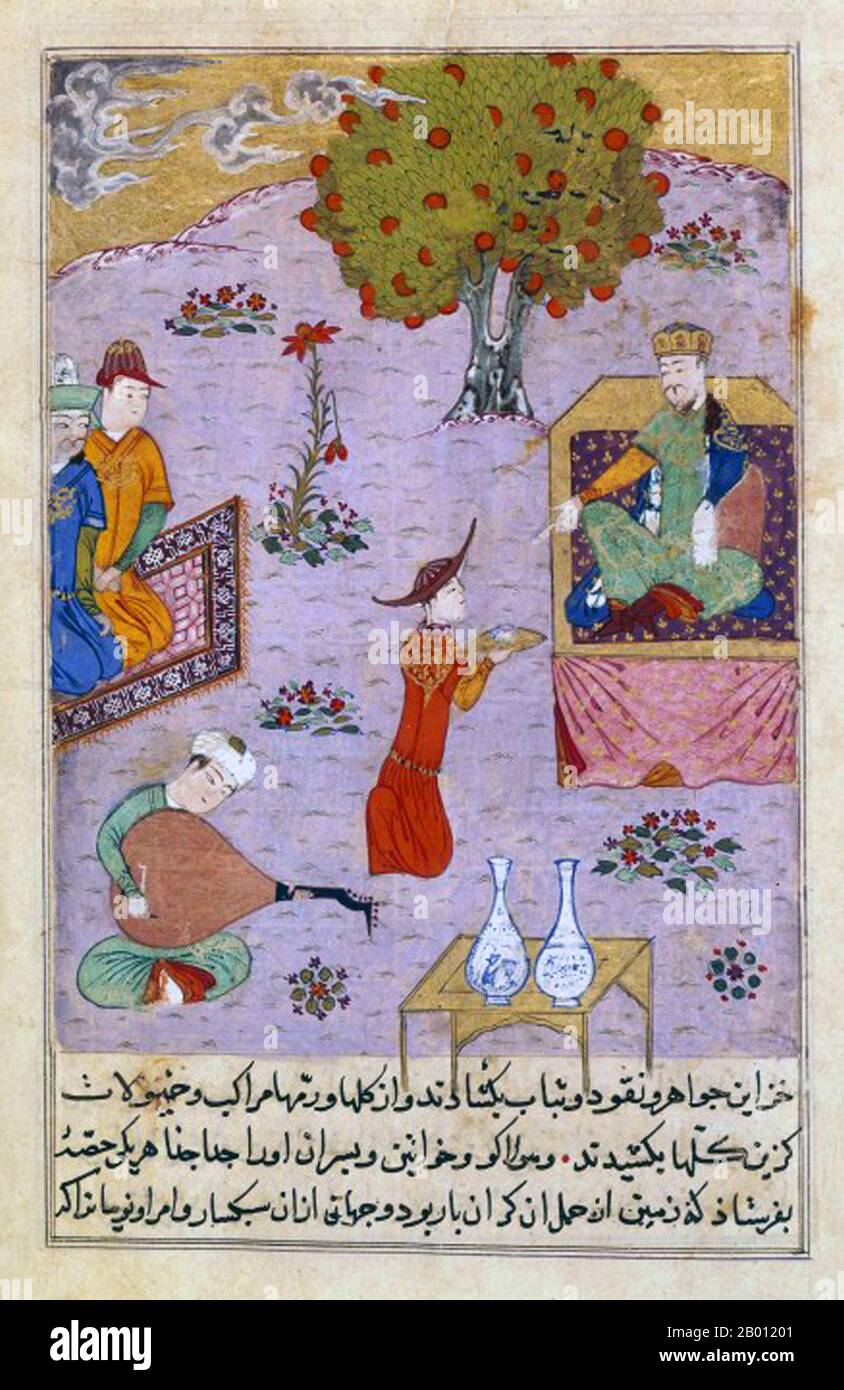 خزاین جواهر و نقود و ثیاب بکشادند و از کلها و رمها مراکب و خیولات
کزین کلها بکشیدند • وسولاکو و خواتین و پسران او را جدا جدا هر یکی حصه
بفرستاذ که زمین از حمل ان کران بار بود و جهانی از ان سبکسار و امرا و نویینان
alamy
Image ID: 2B01201
www.alamy.com